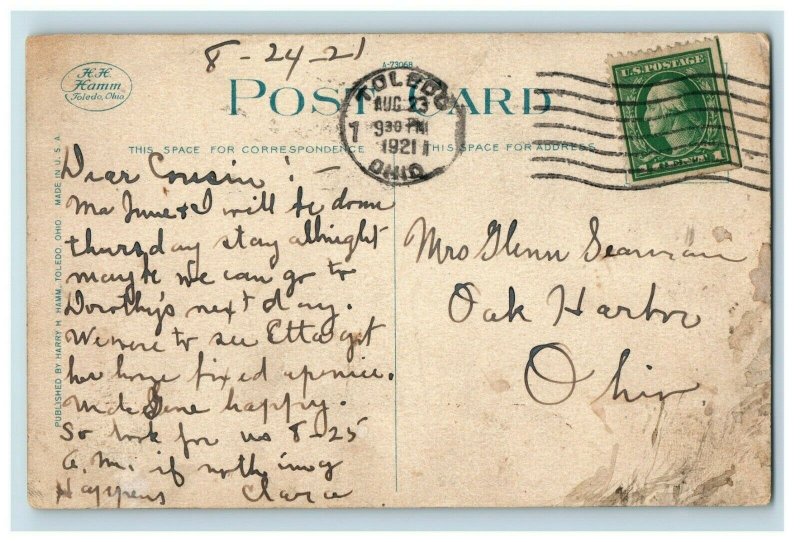 8-24-21
H.H.
Hamm
Toledo, Ohio
A-73068
POST CARD
TOLEDO
AUG 23
930 PM
1921
OHIO
1
U.S. POSTAGE
1 CENT 1
THIS SPACE FOR CORRESPONDENCE
THIS SPACE FOR ADDRESS
PUBLISHED BY HARRY H. HAMM, TOLEDO, OHIO MADE IN U.S.A.
Dear Cousin : -
Ma June & I will be down
thursday stay allnight
maybe we can go to
Dorothy's next day.
We were to see Etta got
her home fixed up nice.
happy.
So look for us 8-25
a.m. if nothing
Happens Clara
Mrs Glenn Seaman
Oak Harbor
Ohio